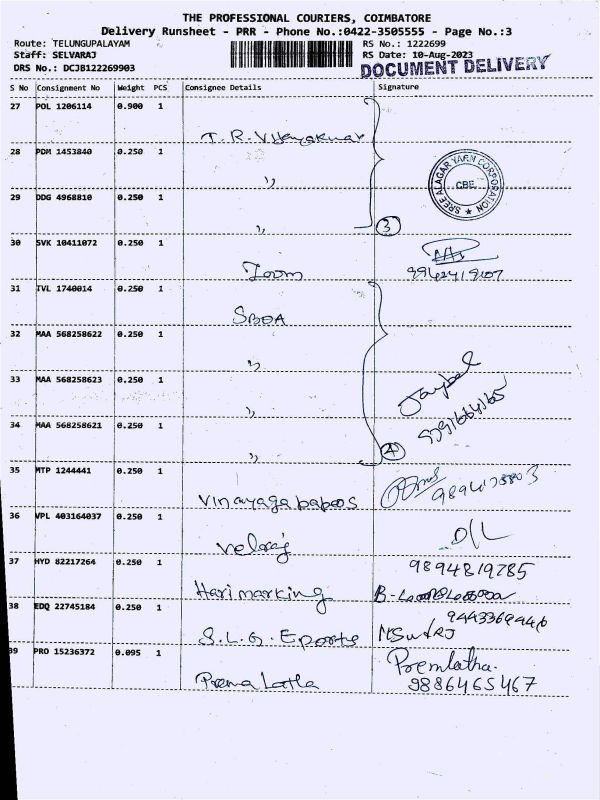 THE PROFESSIONAL COURIERS, COIMBATORE
Delivery Runsheet - PRR - Phone No.:0422-3505555 - Page No.:3
Route: TELUNGUPALAYAM RS No.: 1222699
Staff: SELVARAJ RS Date: 10-Aug-2023
DRS No.: DCJB122269903 DOCUMENT DELIVERY
S No Consignment No Weight PCS Consignee Details Signature
27 POL 1206114 0.900 1
T. R. Vijayakumar
28 PDM 1453840 0.250 1
SREE ALAGAR YARN CORPORATION
CBE.
"
29 DDG 4968810 0.250 1
" 3
30 SVK 10411072 0.250 1
Zoom
31 TVL 1740014 0.250 1
SBOA
32 MAA 568258622 0.250 1
"
33 MAA 568258623 0.250 1
"
34 MAA 568258621 0.250 1
" 4
35 MTP 1244441 0.250 1
Vinayaga
36 VPL 403164037 0.250 1
D/L
Velraj
37 HYD 82217264 0.250 1
9894819785
Harimarking
38 EDQ 22745184 0.250 1
9443369446
S.L.G. Eports
39 PRO 15236372 0.095 1
Premlatha.
Prema Latha 9886465467